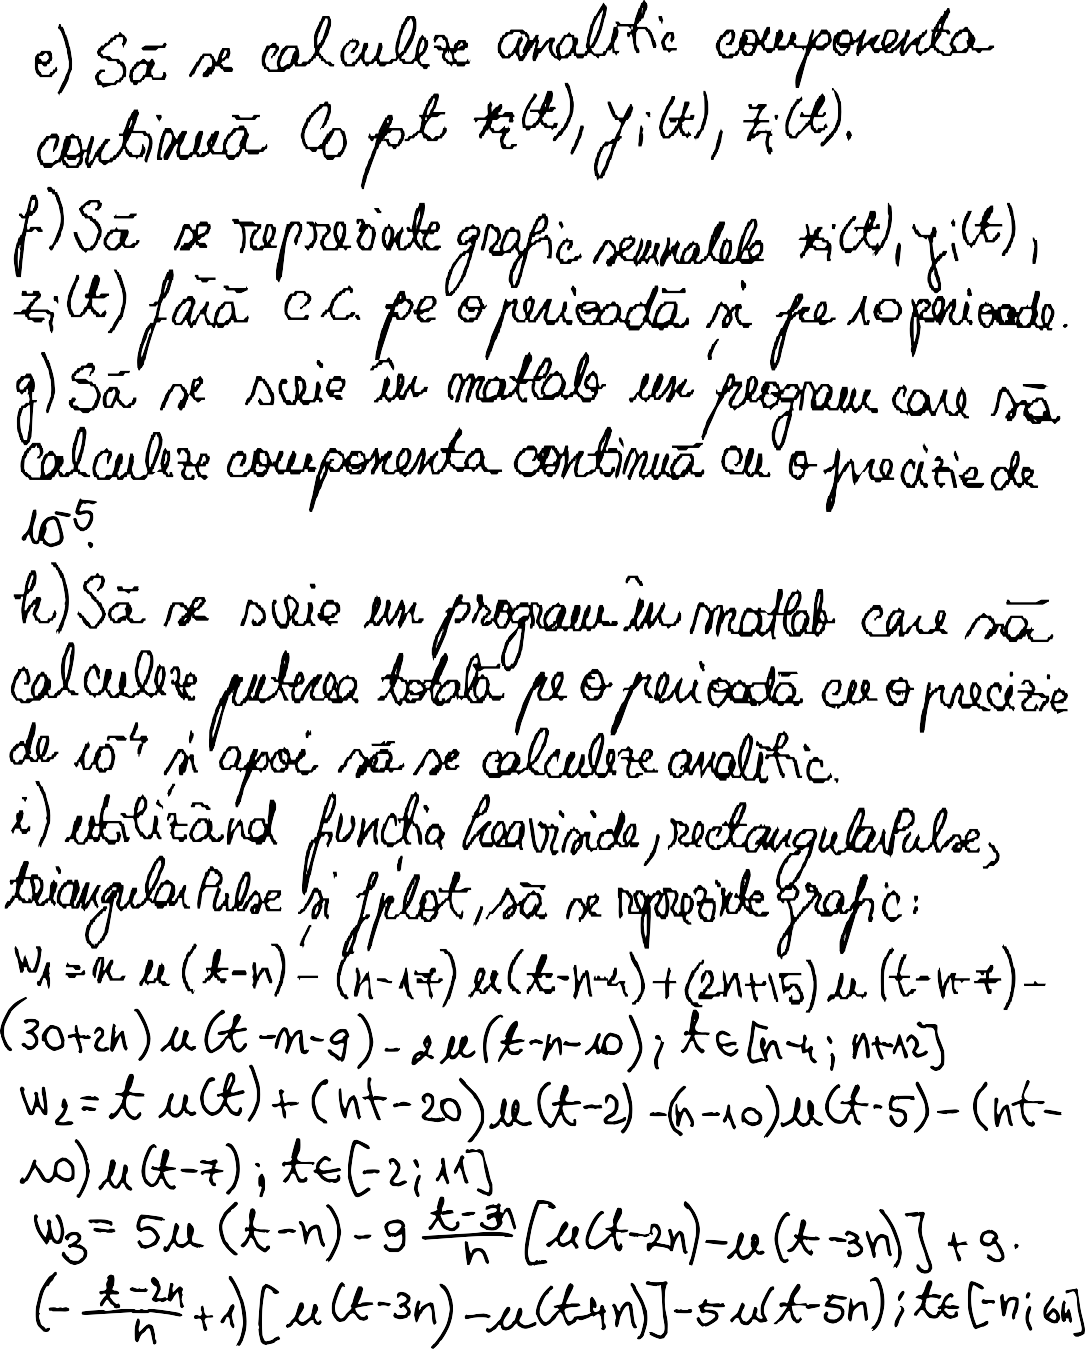 e) Să se calculeze analitic componenta
continuă C₀ pt xᵢ(t), yᵢ(t), zᵢ(t).
f) Să se reprezinte grafic semnalele xᵢ(t), yᵢ(t),
zᵢ(t) fără C.C. pe o perioadă și pe 10 perioade.
g) Să se scrie în matlab un program care să
calculeze componenta continuă cu o precizie de
10⁻⁵.
h) Să se scrie un program în matlab care să
calculeze puterea totală pe o perioadă cu o precizie
de 10⁻⁴ și apoi să se calculeze analitic.
i) utilizând funcția heaviside, rectangularPulse,
triangularPulse și fplot, să se reprezinte grafic:
w₁ = n u(t-n) - (n-17) u(t-n-4) + (2n+15) u(t-n-7) -
(30+2n) u(t-n-9) - 2u(t-n-10); t∈[n-4; n+12]
w₂ = t u(t) + (nt-20) u(t-2) - (n-10) u(t-5) - (nt-
10) u(t-7); t∈[-2; 11]
w₃ = 5u(t-n) - 9 (t-3n)/n [u(t-2n) - u(t-3n)] + 9·
(-(t-2n)/n + 1) [u(t-3n) - u(t-4n)] - 5u(t-5n); t∈[-n; 6n]